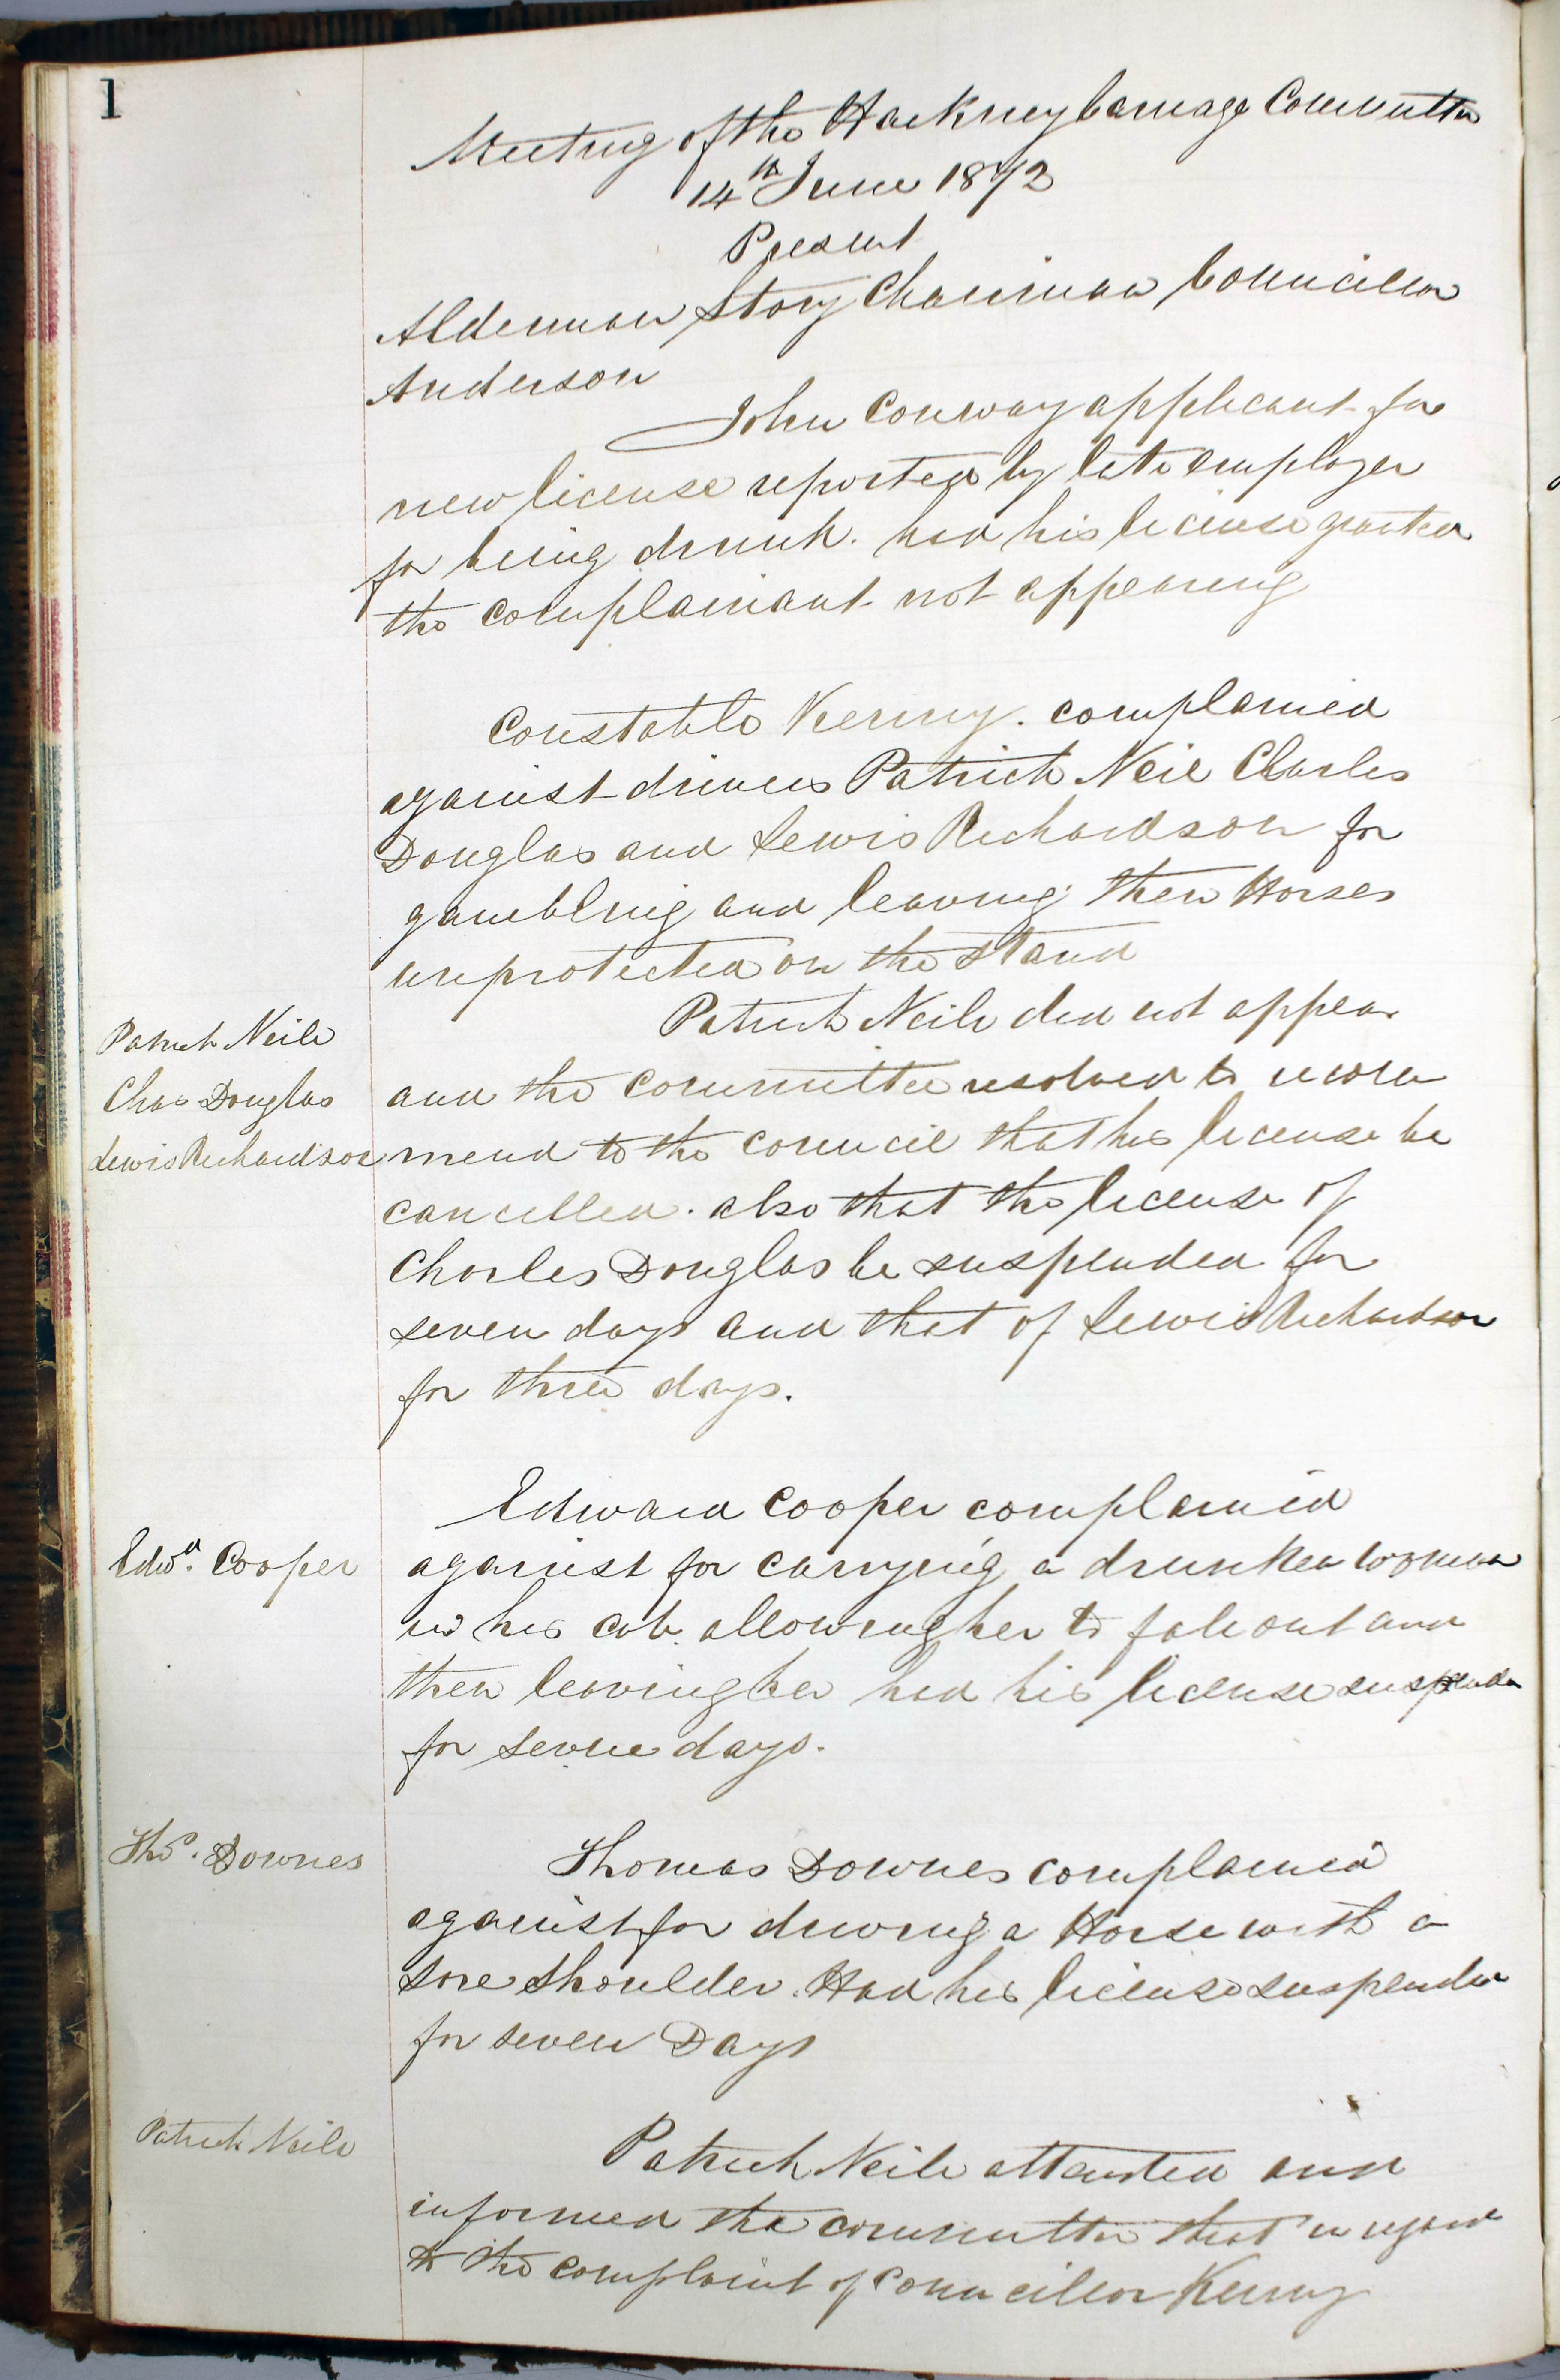 1
Meeting of the Hackney Carriage Committee
14th June 1872
Present
Alderman Story Chairman Councillor
Anderson
John Conway applicant for
new license reported by late employer
for being drunk. had his license granted
the complainant not appearing
Constable Kenny. complained
against drivers Patrick Neil Charles
Douglas and Lewis Richardson for
gambling and leaving their Horses
unprotected on the stand
Patrick Neile did not appear
Patrick Neile
Chas Douglas
Lewis Richardson
and the committee resolved to recom
mend to the council that his license be
cancelled. also that the license of
Charles Douglas be suspended for
seven days and that of Lewis Richardson
for three days.
Edward Cooper complained
Edwd. Cooper
against for carrying a drunken woman
in his cab allowing her to fall out and
then leaving her had his license suspended
for seven days.
Thos. Downes
Thomas Downes complained
against for driving a Horse with a
sore shoulder. Had his license suspended
for seven Days
Patrick Neile
Patrick Neile attended and
informed the committee that in regard
to the complaint of Councillor Kenny